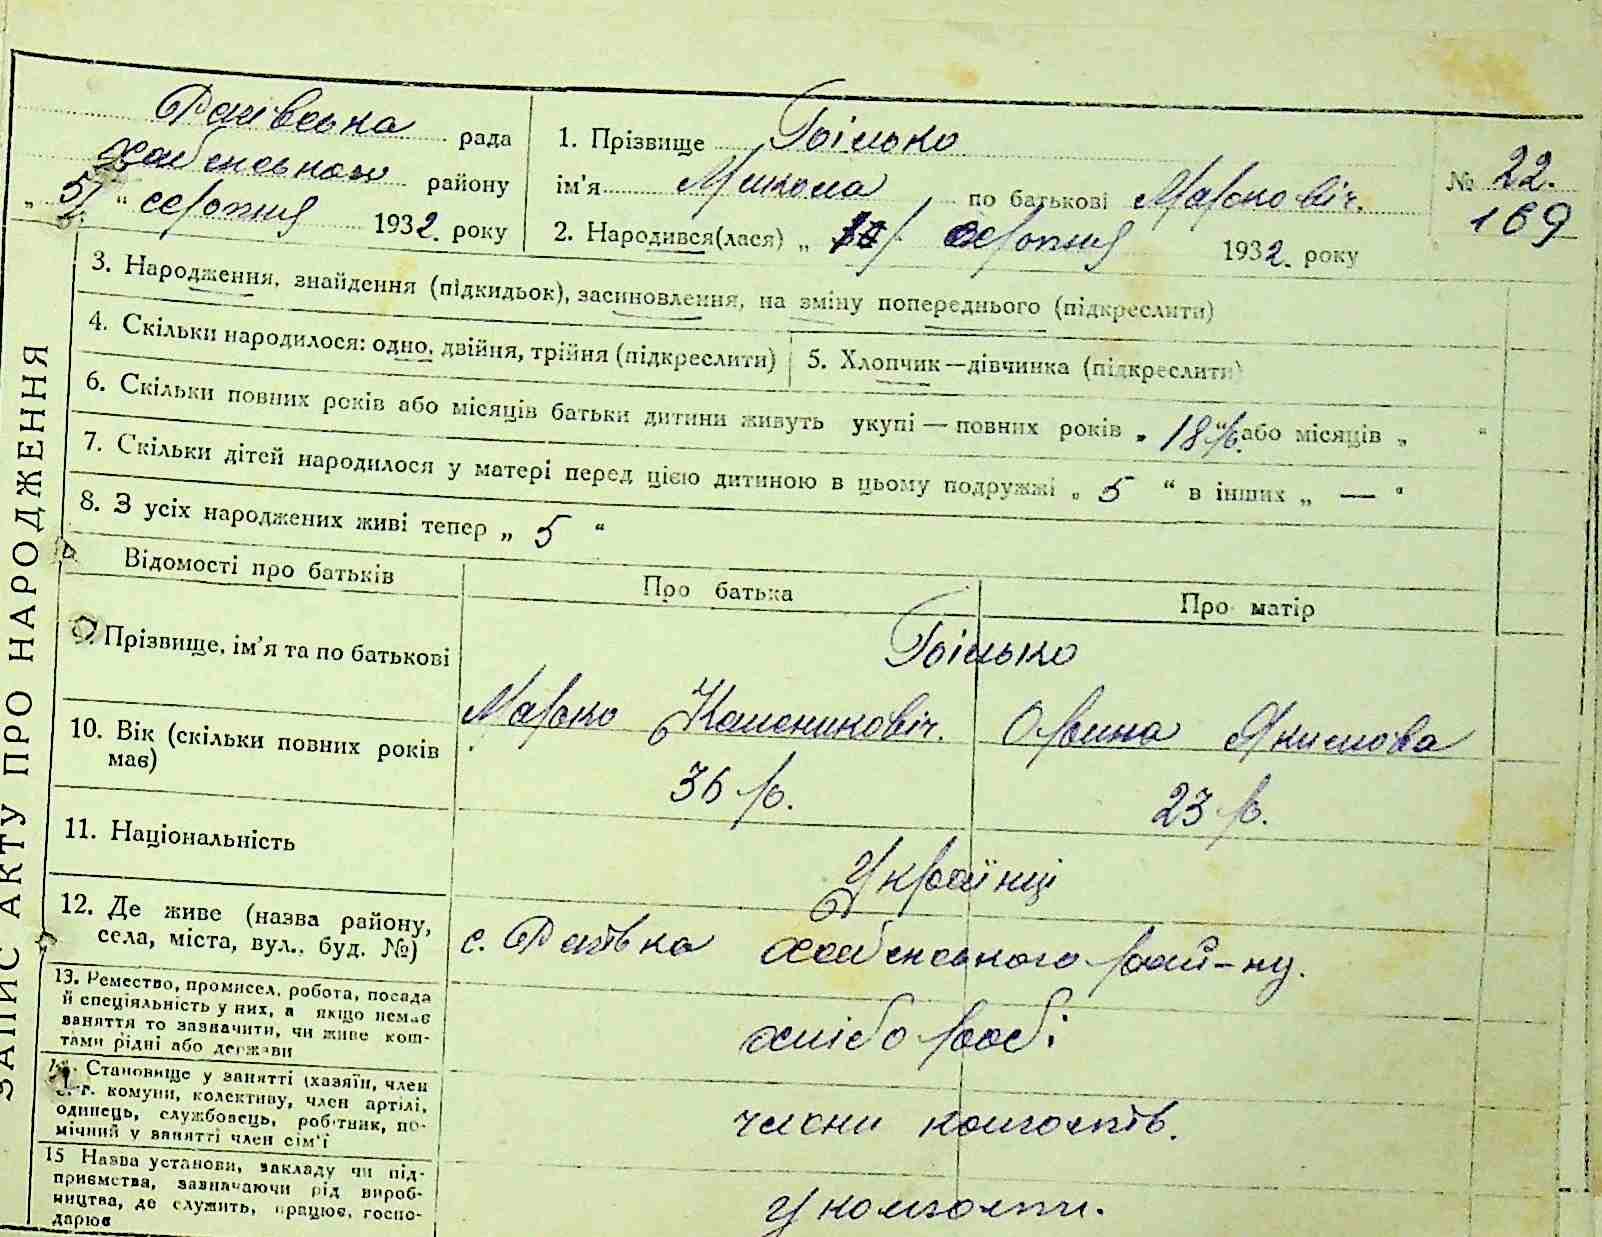 ЗАПИС АКТУ ПРО НАРОДЖЕННЯ
рада
району
„ 5/ “ серпня 1932. року
1. Прізвище Білько
ім'я Микола по батькові Марковіч.
2. Народився(лася) „ серпня 1932. року
№ 22.
169
3. Народження, знайдення (підкидьок), засиновлення, на зміну попереднього (підкреслити)
4. Скільки народилося: одно, двійня, трійня (підкреслити)
5. Хлопчик—дівчинка (підкреслити)
6. Скільки повних років або місяців батьки дитини живуть укупі — повних років „ 18 р. “ або місяців „ “
7. Скільки дітей народилося у матері перед цією дитиною в цьому подружжі „ 5 “ в інших „ — “
8. З усіх народжених живі тепер „ 5 “
Відомості про батьків
Про батька
Про матір
9. Прізвище, ім'я та по батькові
Білько
Марко
Якимова
10. Вік (скільки повних років
має)
36 р.
23 р.
11. Національність
Українці
12. Де живе (назва району,
села, міста, вул., буд. №)
с. рай-ну.
13. Ремество, промисел, робота, посада
й спеціяльність у них, а якщо немає
заняття то зазначити, чи живе кош-
тами рідні або держави
хлібороби
14. Становище у занятті (хазяїн, член
с.-г. комуни, колективу, член артілі,
одинець, службовець, робітник, по-
мічний у занятті член сім'ї
члени колгоспів.
15 Назва установи, закладу чи під-
приємства, зазначаючи рід вироб-
ництва, де служить, працює, госпо-
дарює
У колгоспі.